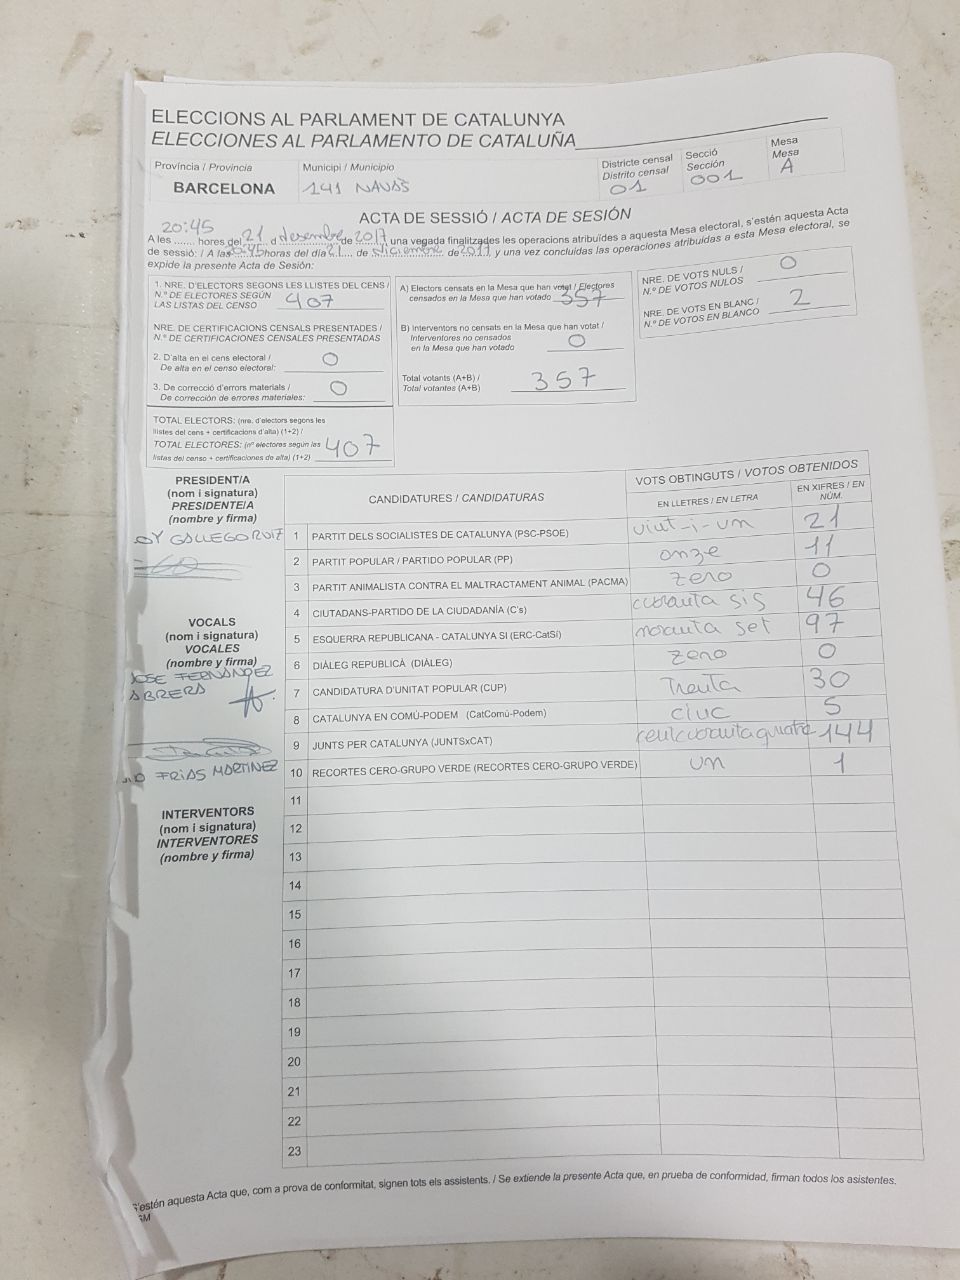 ELECCIONS AL PARLAMENT DE CATALUNYA
ELECCIONES AL PARLAMENTO DE CATALUÑA
Província / Provincia
BARCELONA
Municipi / Municipio
141 NAVÀS
Districte censal
Distrito censal
01
Secció
Sección
001
Mesa
Mesa
A
ACTA DE SESSIÓ / ACTA DE SESIÓN
20:45
A les ....... hores del 21 d desembre de 2017, una vegada finalitzades les operacions atribuïdes a aquesta Mesa electoral, s'estén aquesta Acta
de sessió: / A las 20:45 horas del día 21 de diciembre de 2017, y una vez concluidas las operaciones atribuidas a esta Mesa electoral, se
expide la presente Acta de Sesión:
1. NRE. D'ELECTORS SEGONS LES LLISTES DEL CENS /
N.º DE ELECTORES SEGÚN
LAS LISTAS DEL CENSO 407
NRE. DE CERTIFICACIONS CENSALS PRESENTADES /
N.º DE CERTIFICACIONES CENSALES PRESENTADAS
2. D'alta en el cens electoral /
De alta en el censo electoral: 0
3. De correcció d'errors materials /
De corrección de errores materiales: 0
TOTAL ELECTORS: (nre. d'electors segons les
llistes del cens + certificacions d'alta) (1+2) /
TOTAL ELECTORES: (nº electores según las
listas del censo + certificaciones de alta) (1+2) 407
A) Electors censats en la Mesa que han votat / Electores
censados en la Mesa que han votado 357
B) Interventors no censats en la Mesa que han votat /
Interventores no censados
en la Mesa que han votado 0
Total votants (A+B) /
Total votantes (A+B) 357
NRE. DE VOTS NULS /
N.º DE VOTOS NULOS 0
NRE. DE VOTS EN BLANC /
N.º DE VOTOS EN BLANCO 2
PRESIDENT/A
(nom i signatura)
PRESIDENTE/A
(nombre y firma)
GALLEGO RUIZ
VOCALS
(nom i signatura)
VOCALES
(nombre y firma)
JOSE FERNANDEZ
FRIAS MARTINEZ
INTERVENTORS
(nom i signatura)
INTERVENTORES
(nombre y firma)
CANDIDATURES / CANDIDATURAS
VOTS OBTINGUTS / VOTOS OBTENIDOS
EN LLETRES / EN LETRA
EN XIFRES / EN NÚM.
1 PARTIT DELS SOCIALISTES DE CATALUNYA (PSC-PSOE) vint-i-un 21
2 PARTIT POPULAR / PARTIDO POPULAR (PP) onze 11
3 PARTIT ANIMALISTA CONTRA EL MALTRACTAMENT ANIMAL (PACMA) zero 0
4 CIUTADANS-PARTIDO DE LA CIUDADANÍA (C's) curanta sis 46
5 ESQUERRA REPUBLICANA - CATALUNYA SÍ (ERC-CatSí) noranta set 97
6 DIÀLEG REPUBLICÀ (DIÀLEG) zero 0
7 CANDIDATURA D'UNITAT POPULAR (CUP) Trenta 30
8 CATALUNYA EN COMÚ-PODEM (CatComú-Podem) cinc 5
9 JUNTS PER CATALUNYA (JUNTSxCAT) centcurantaquatre 144
10 RECORTES CERO-GRUPO VERDE (RECORTES CERO-GRUPO VERDE) un 1
11
12
13
14
15
16
17
18
19
20
21
22
23
S'estén aquesta Acta que, com a prova de conformitat, signen tots els assistents. / Se extiende la presente Acta que, en prueba de conformidad, firman todos los asistentes.